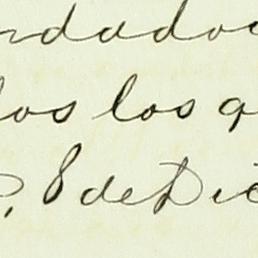 ndado
los los q
, 8 de Dic